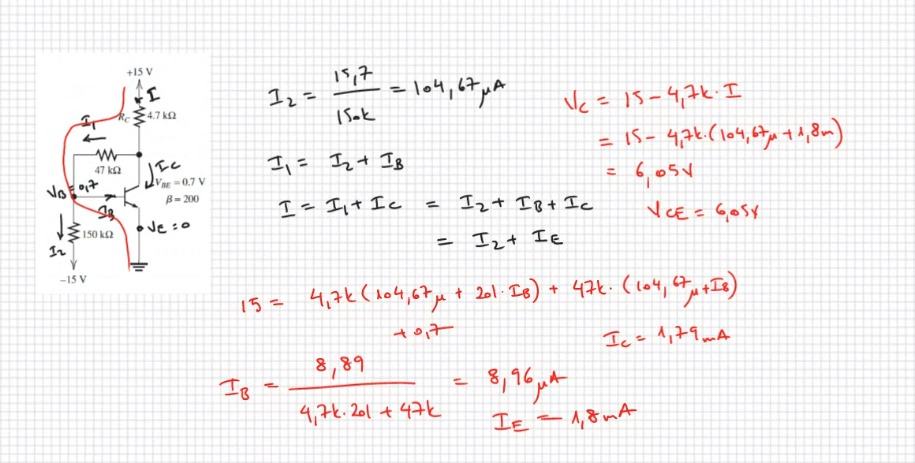 +15 V
I
I₁
R_C
4.7 kΩ
47 kΩ
I_C
V_B = 0,7
V_BE = 0.7 V
β = 200
I_B
V_E = 0
I₂
150 kΩ
−15 V
I₂ = 15,7 / 150k = 104,67 μA
I₁ = I₂ + I_B
I = I₁ + I_C = I₂ + I_B + I_C
= I₂ + I_E
V_C = 15 − 4,7k · I
= 15 − 4,7k · (104,67μ + 1,8m)
= 6,05V
V_CE = 6,05V
15 = 4,7k (104,67μ + 201 · I_B) + 47k · (104,67μ + I_B)
+ 0,7
I_C = 1,79 mA
I_B = 8,89 / 4,7k · 201 + 47k = 8,96 μA
I_E = 1,8 mA